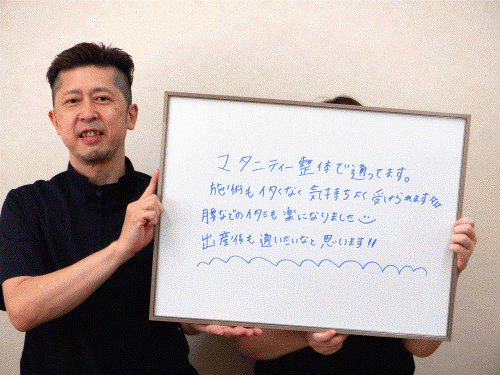 マタニティー整体で通ってます。
施術もイタくなく気持ちよく受けられます!!
腰などのイタミも楽になりました
出産後も通いたいなと思います!!